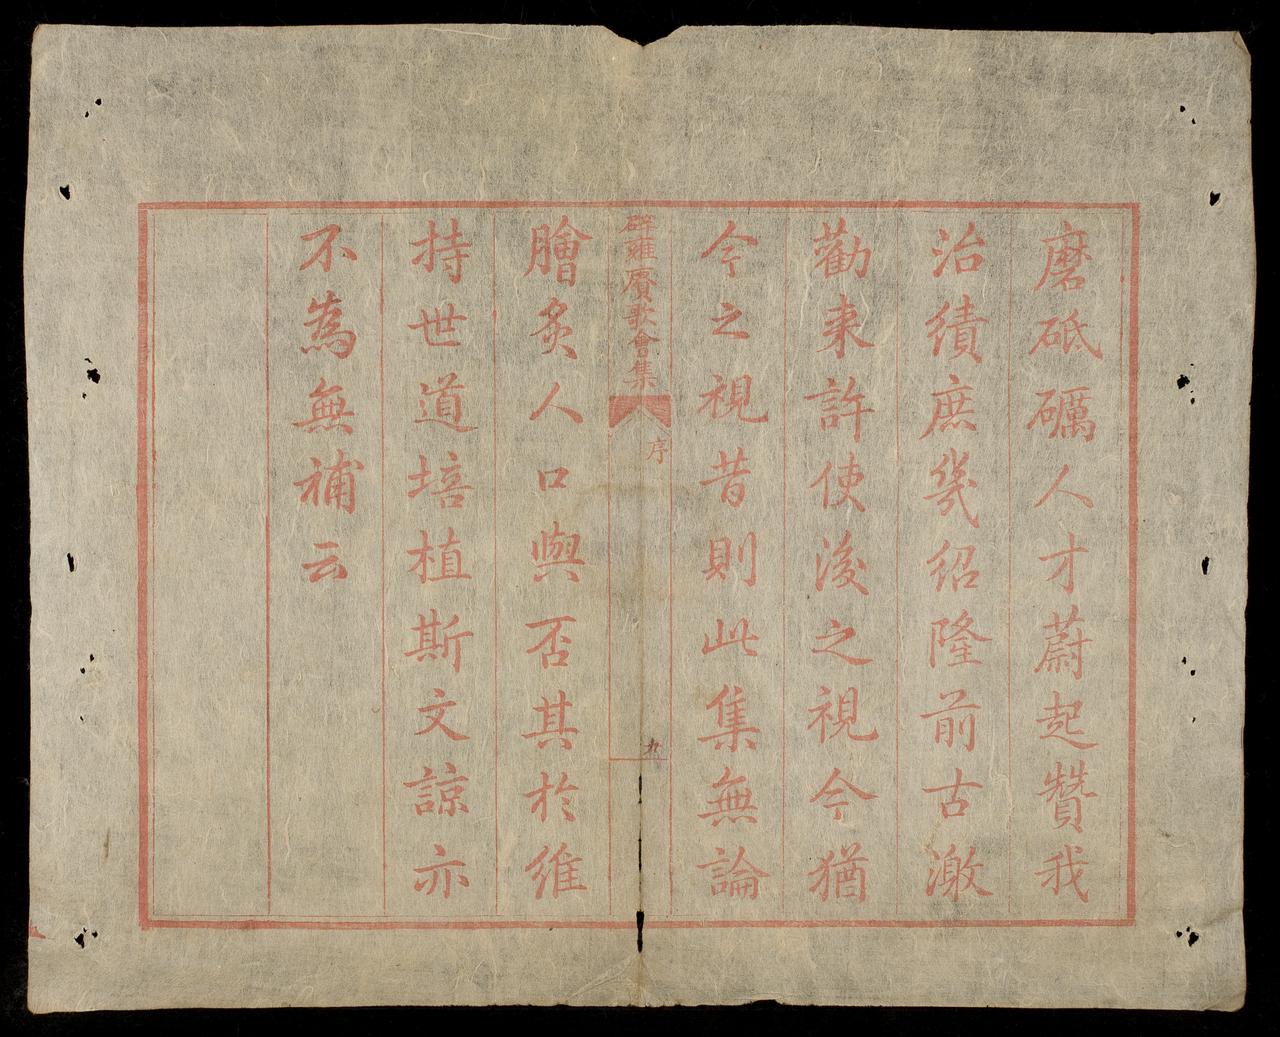 磨砥礪人才蔚起贊我
治績庶幾紹隆前古激
勸来許使後之視今猶
今之視昔則此集無論
辟雍賡歌會集
序
九
膾炙人口與否其於維
持世道培植斯文諒亦
不為無補云